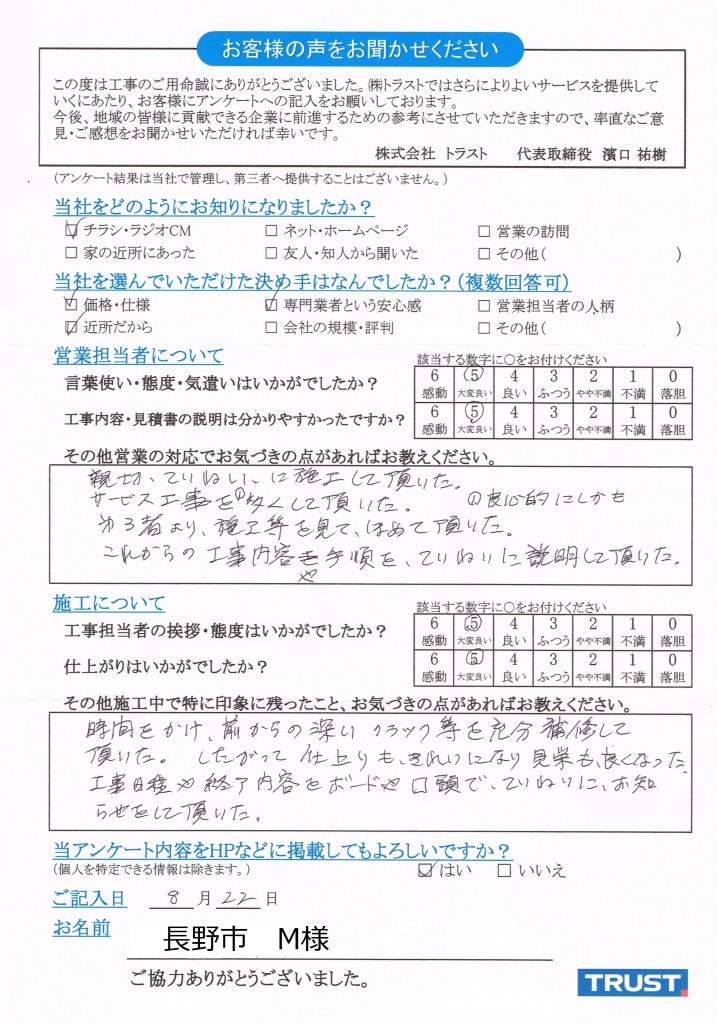 お客様の声をお聞かせください
この度は工事のご用命誠にありがとうございました。㈱トラストではさらによりよいサービスを提供して
いくにあたり、お客様にアンケートへの記入をお願いしております。
今後、地域の皆様に貢献できる企業に前進するための参考にさせていただきますので、率直なご意
見・ご感想をお聞かせいただければ幸いです。
株式会社 トラスト 代表取締役 濱口 祐樹
(アンケート結果は当社で管理し、第三者へ提供することはございません。)
当社をどのようにお知りになりましたか?
☑ チラシ・ラジオCM □ ネット・ホームページ □ 営業の訪問
□ 家の近所にあった □ 友人・知人から聞いた □ その他( )
当社を選んでいただけた決め手はなんでしたか?(複数回答可)
☑ 価格・仕様 ☑ 専門業者という安心感 □ 営業担当者の人柄
☑ 近所だから □ 会社の規模・評判 □ その他( )
営業担当者について
該当する数字に○をお付けください
言葉使い・態度・気遣いはいかがでしたか?
6 ⑤ 4 3 2 1 0
感動 大変良い 良い ふつう やや不満 不満 落胆
工事内容・見積書の説明は分かりやすかったですか?
6 ⑤ 4 3 2 1 0
感動 大変良い 良い ふつう やや不満 不満 落胆
その他営業の対応でお気づきの点があればお教えください。
親切、ていねい、に施工して頂いた。
サービス工事を①多くして頂いた。 ①良心的にしかも
第3者より、施工等を見て、ほめて頂いた。
これからの工事内容や手順を、ていねいに説明して頂いた。
施工について
該当する数字に○をお付けください
工事担当者の挨拶・態度はいかがでしたか?
6 ⑤ 4 3 2 1 0
感動 大変良い 良い ふつう やや不満 不満 落胆
仕上がりはいかがでしたか?
6 ⑤ 4 3 2 1 0
感動 大変良い 良い ふつう やや不満 不満 落胆
その他施工中で特に印象に残ったこと、お気づきの点があればお教えください。
時間をかけ、前からの深いクラック等を充分補修して
頂いた。したがって仕上りも、きれいになり見栄も、良くなった。
工事日程や終了内容をボードや口頭で、ていねいに、お知
らせをして頂いた。
当アンケート内容をHPなどに掲載してもよろしいですか?
(個人を特定できる情報は除きます。) ☑ はい □ いいえ
ご記入日 8 月 22 日
お名前 長野市 M様
ご協力ありがとうございました。
TRUST